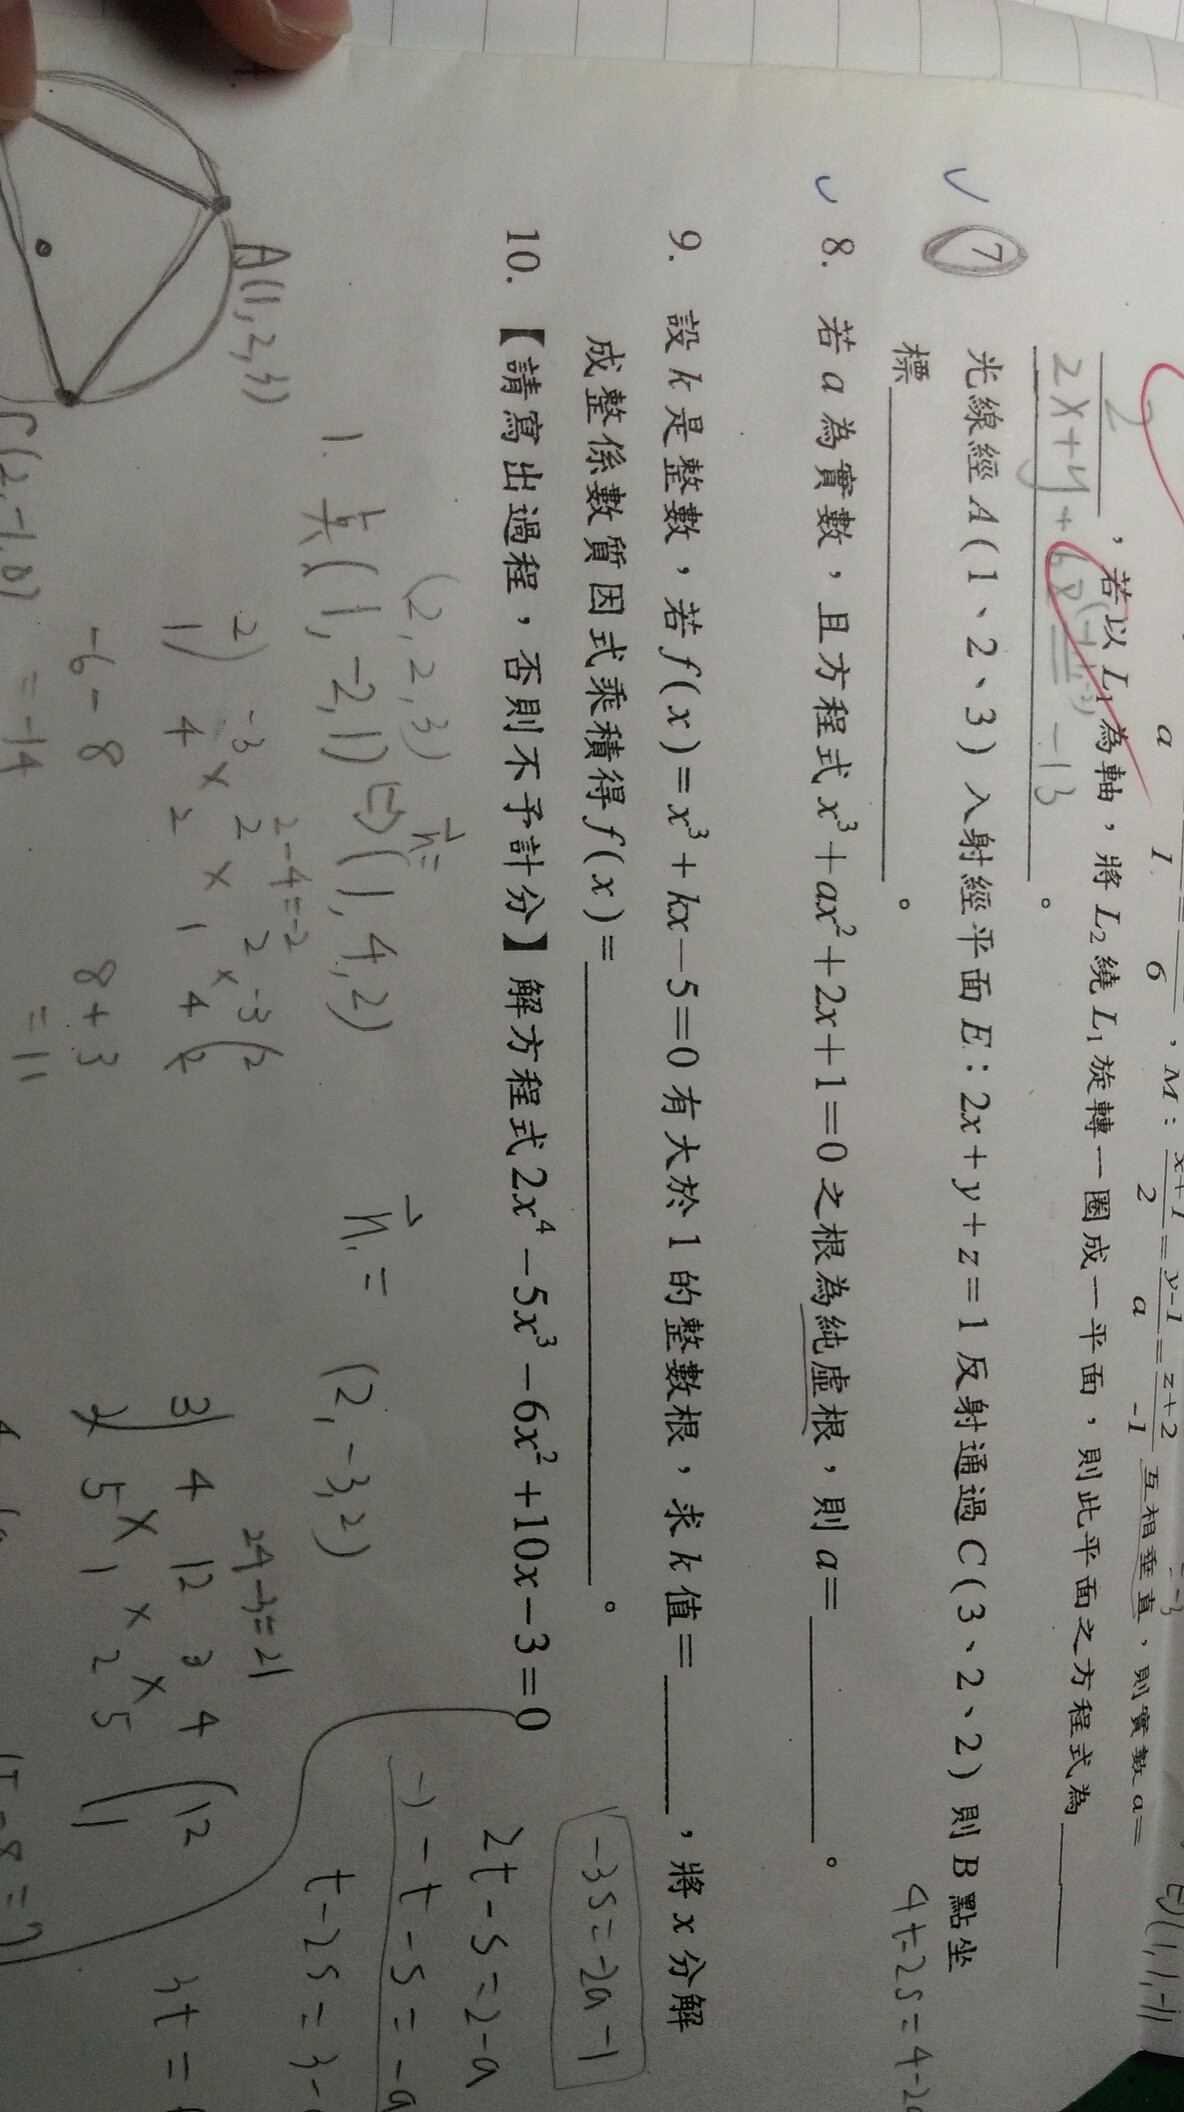 a 1 6 , M : x+1/2 = y-1/a = z+2/-1 互相垂直，則實數 a=
2 ，若以 L1 為軸，將 L2 繞 L1 旋轉一圈成一平面，則此平面之方程式為
2x+y+ -13 。
7 光線經 A(1、2、3) 入射經平面 E：2x+y+z=1 反射通過 C(3、2、2) 則 B 點坐
標 。
8. 若 a 為實數，且方程式 x³+ax²+2x+1=0 之根為純虛根，則 a= 。
9. 設 k 是整數，若 f(x)=x³+kx-5=0 有大於 1 的整數根，求 k 值= ，將 x 分解
成整係數質因式乘積得 f(x)= 。
10. 【請寫出過程，否則不予計分】解方程式 2x⁴-5x³-6x²+10x-3=0
(1,1,-1)
4t-2s=4-2a
-3s=-2a-1
2t-s=2-a
-) -t-s=-a
t-2s=3-
3t=
(2,2,3)
n=
1. 點(1,-2,1) (1,4,2)
n1= (2,-3,2)
2-4=-2
-2) -3 2 2 -3 (2
1) 4 × 2 × 1 × 4 2
-6-8
=-14
8+3
=11
24-3=21
3) 4 12 3 4 (12
5 × 1 × 2 × 5 (1
A(1,2,3)
(2,-1,0)